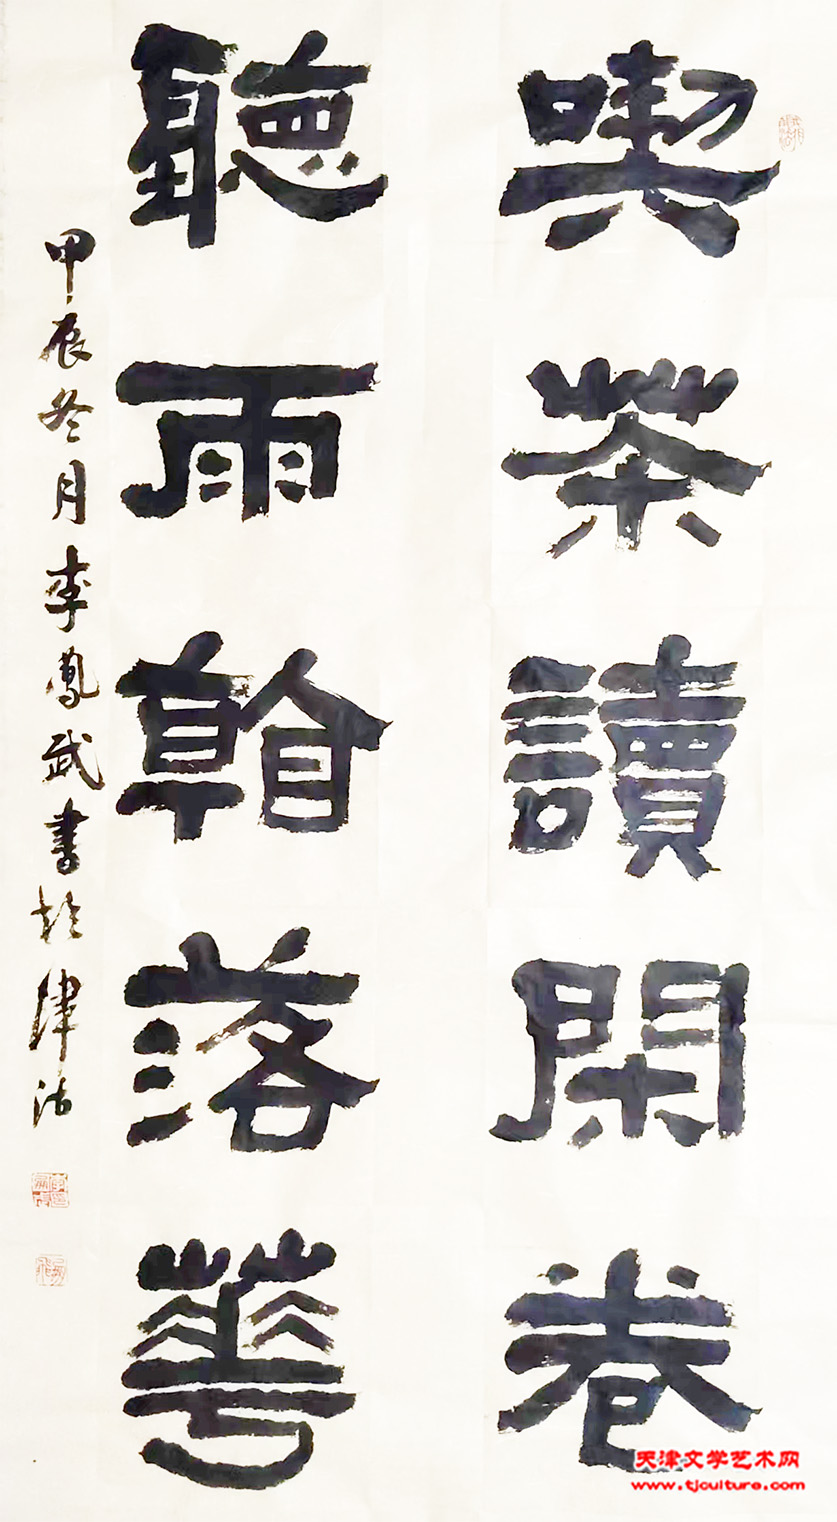 喫茶讀閑卷
聽雨看落華
甲辰冬月李鳳武書於津沽
天津文学艺术网
www.tjculture.com